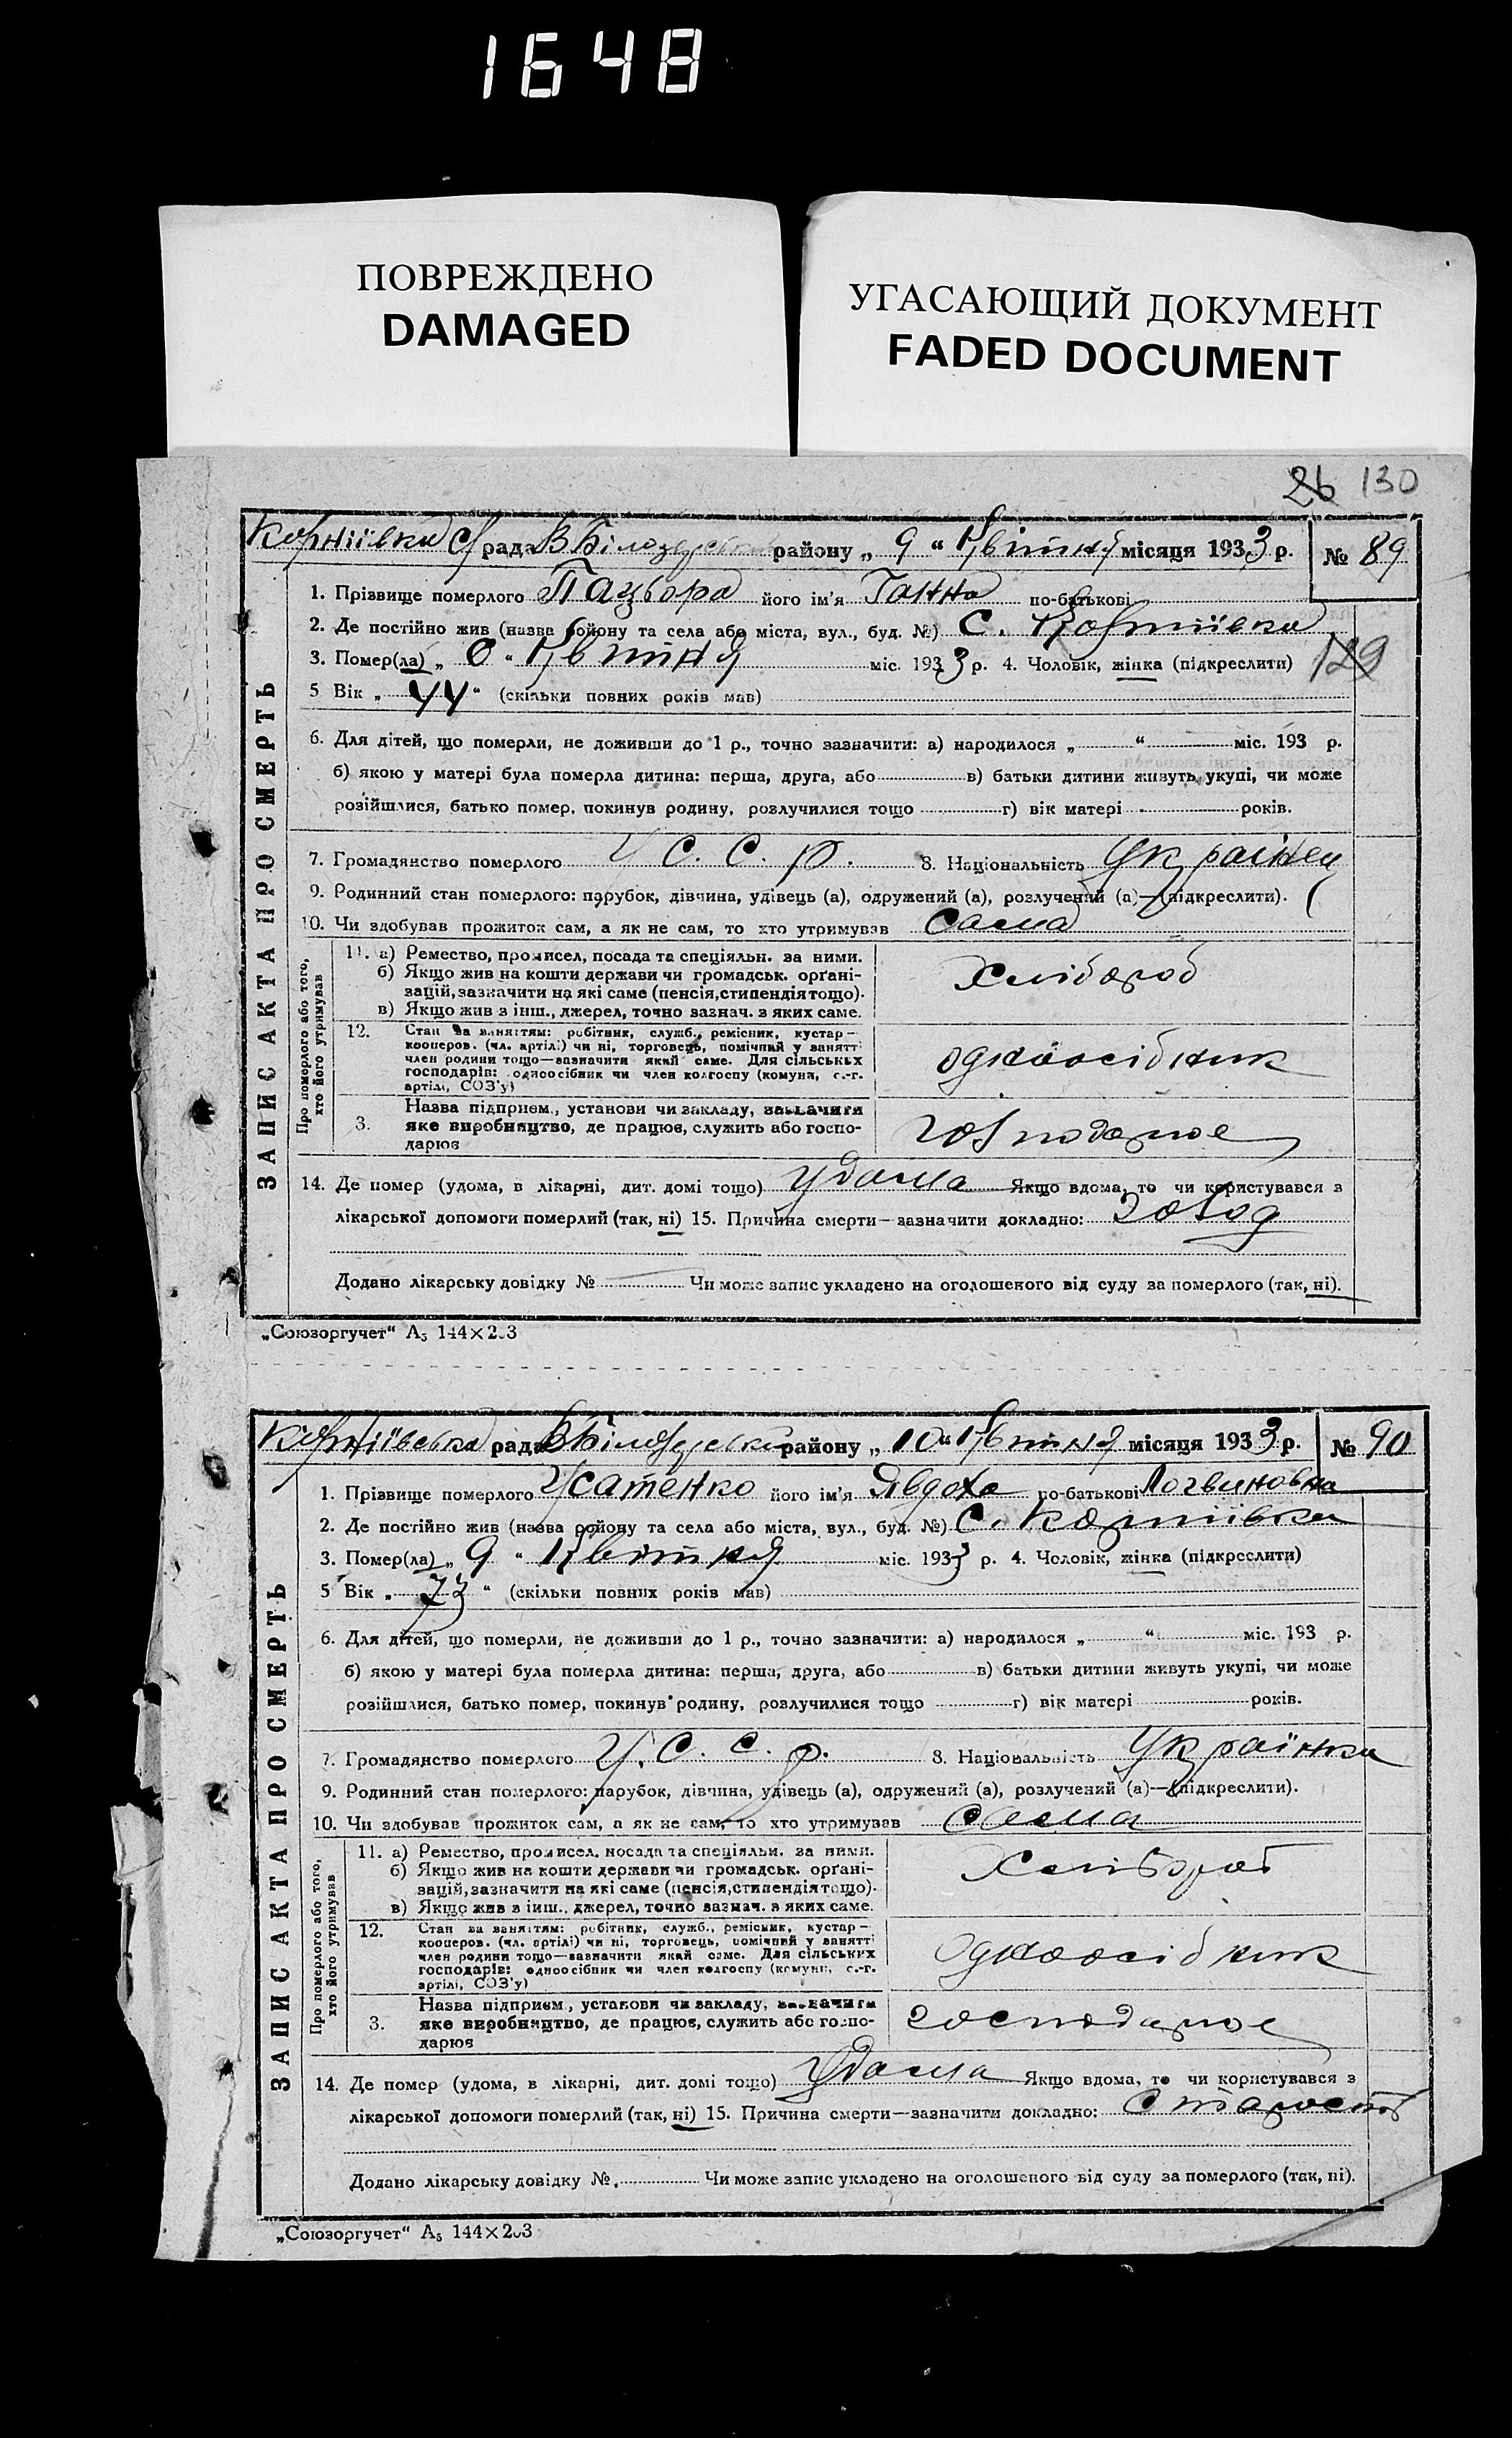 1648
ПОВРЕЖДЕНО
DAMAGED
УГАСАЮЩИЙ ДОКУМЕНТ
FADED DOCUMENT
26 130
рада району „ 9 “ Квітня місяця 1933 р. № 89
1. Прізвище померлого Пацьора його ім'я Ганна по-батькові
2. Де постійно жив (назва району та села або міста, вул., буд. №) С. Корніївка
3. Помер(ла) „ “ Квітня міс. 1933 р. 4. Чоловік, жінка (підкреслити) 129
5 Вік „ 44 “ (скільки повних років мав)
6. Для дітей, що померли, не доживши до 1 р., точно зазначити: а) народилося „ “ міс. 193 р.
б) якою у матері була померла дитина: перша, друга, або в) батьки дитини живуть укупі, чи може
розійшлися, батько помер, покинув родину, розлучилися тощо г) вік матері років.
7. Громадянство померлого У С. С. Р. 8. Національність Українец
9. Родинний стан померлого: парубок, дівчина, удівець (а), одружений (а), розлучений (а)—(підкреслити).
10. Чи здобував прожиток сам, а як не сам, то хто утримував сама
ЗАПИС АКТА ПРО СМЕРТЬ
Про померлого або того, хто його утримував
11. а) Ремество, промисел, посада та спеціяльн. за ними.
б) Якщо жив на кошти держави чи громадськ. орґані-
зацій, зазначити на які саме (пенсія, стипендія тощо).
в) Якщо жив з інш., джерел, точно зазнач. з яких саме.
Хлібороб
12. Стан за заняттям: робітник, служб., ремісник, кустар—
кооперов. (чл. артілі) чи ні, торговець, помічний у занятті
член родини тощо—зазначити який саме. Для сільських
господарів: одноосібник чи член колгоспу (комуни, с.-г.
артілі, СОЗ'у)
одноосібник
3. Назва підприєм., установи чи закладу, зазначити
яке виробництво, де працює, служить або госпо-
дарює
господарює
14. Де помер (удома, в лікарні, дит. домі тощо) удома Якщо вдома, то чи користувався з
лікарської допомоги померлий (так, ні) 15. Причина смерти—зазначити докладно: Голод
Додано лікарську довідку № Чи може запис укладено на оголошеного від суду за померлого (так, ні).
„Союзоргучет“ А₅ 144×203
Корніївська рада В Білозерський району „ 10 “ Квітня місяця 1933 р. № 90
1. Прізвище померлого Усатенко його ім'я Явдоха по-батькові Логвиновна
2. Де постійно жив (назва району та села або міста, вул., буд. №) С. Корніївка
3. Помер(ла) „ 9 “ Квітня міс. 1933 р. 4. Чоловік, жінка (підкреслити)
5 Вік „ 73 “ (скільки повних років мав)
6. Для дітей, що померли, не доживши до 1 р., точно зазначити: а) народилося „ “ міс. 193 р.
б) якою у матері була померла дитина: перша, друга, або в) батьки дитини живуть укупі, чи може
розійшлися, батько помер, покинув родину, розлучилися тощо г) вік матері років.
7. Громадянство померлого У. С. С. Р. 8. Національність Українка
9. Родинний стан померлого: парубок, дівчина, удівець (а), одружений (а), розлучений (а)—(підкреслити).
10. Чи здобував прожиток сам, а як не сам, то хто утримував сама
ЗАПИС АКТА ПРО СМЕРТЬ
Про померлого або того, хто його утримував
11. а) Ремество, промисел, посада та спеціяльн. за ними.
б) Якщо жив на кошти держави чи громадськ. орґані-
зацій, зазначити на які саме (пенсія, стипендія тощо).
в) Якщо жив з інш., джерел, точно зазнач. з яких саме.
Хлібороб
12. Стан за заняттям: робітник, служб., ремісник, кустар—
кооперов. (чл. артілі) чи ні, торговець, помічний у занятті
член родини тощо—зазначити який саме. Для сільських
господарів: одноосібник чи член колгоспу (комуни, с.-г.
артілі, СОЗ'у)
Одноосібник
3. Назва підприєм., установи чи закладу, зазначити
яке виробництво, де працює, служить або госпо-
дарює
господарює
14. Де помер (удома, в лікарні, дит. домі тощо) Удома Якщо вдома, то чи користувався з
лікарської допомоги померлий (так, ні) 15. Причина смерти—зазначити докладно:
Додано лікарську довідку № Чи може запис укладено на оголошеного від суду за померлого (так, ні).
„Союзоргучет“ А₅ 144×203